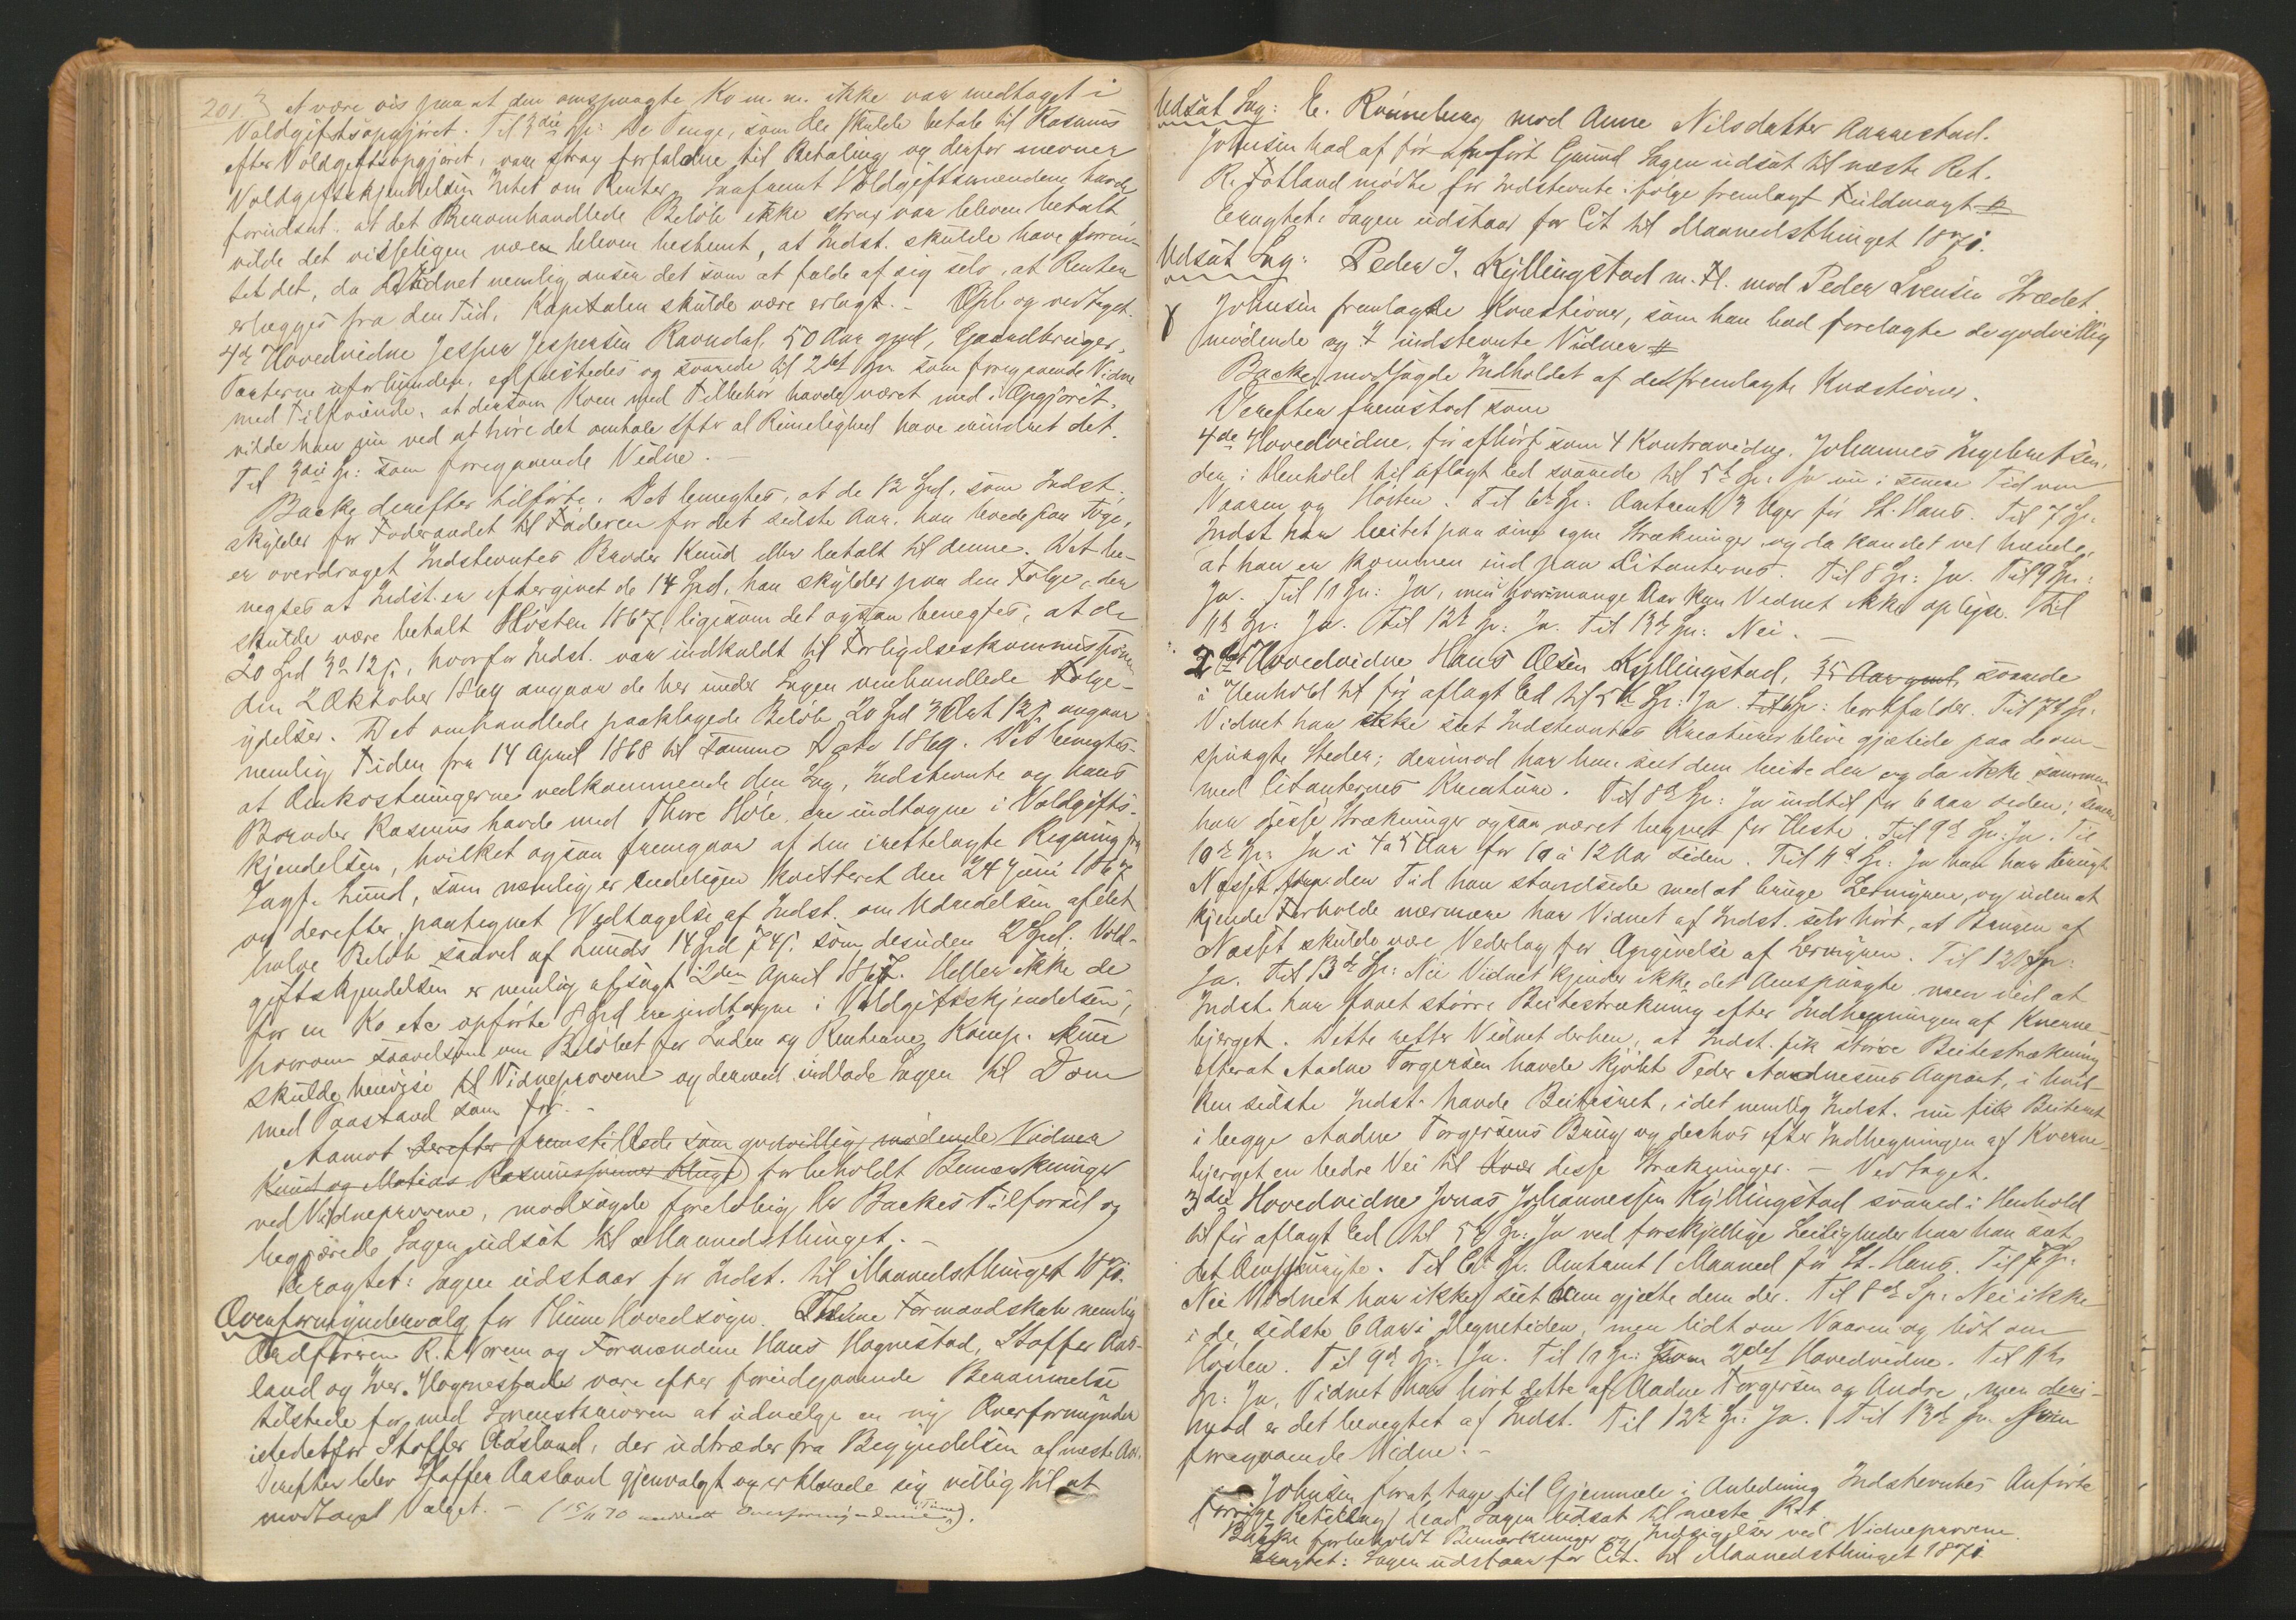 201
at være vis paa at den omspurgte Ko m. m. ikke var medtaget i
Voldgiftsopgjöret. Til 3die Sp: De Penge, som Ole skulde betale til Rasmus
efter Voldgiftsopgjöret, vare strax forfaldne til Betaling og derfor nævner
Voldgiftskjendelsen Intet om Renter. Saafremt Voldgiftsmændene havde
forudsat, at det omhandlede Belöb ikke strax var bleven betalt,
vilde det visseligen være bleven bestemt, at Indst. skulde have forren-
tet det, da Vidnet nemlig anser det som at falde af sig selv, at Renter
erlægges fra den Tid, Kapitalen skulde være erlagt. – Opl. og vedtaget.
4de Hovedvidne Jesper Jespersen Ravndal, 50 Aar gml, Gaardbruger,
Parterne uforbunden, edfæstedes og svarede til 2det Sp. som foregaaende Vidne
med Tilföiende, at dersom Koen med Tilbehör havde været med i Opgjöret,
vilde han nu ved at höre det omtale efter al Rimelighed have mindnet det.
Til 3die Sp: som foregaaende Vidne. –
Backe derefter tilförte. Det benegtes, at de 12 Spd, som Indst.
skylder for Foderaadet til Faderen for det sidste Aar, han levede paa
er overdraget Indstevntes Broder Knud eller betalt til denne. Det be-
negtes at Indst. er eftergivet de 14 Spd, han skylder paa den Fölge, der
skulde være betalt Hösten 1867, ligesom det ogsaa benegtes, at de
20 Spd 3 12 s, hvorfor Indst. var indkaldt til Forligelseskommissionen
den 2 Oktober 1869 angaar de her under Sagen omhandlede Fölge-
ydelser. Det omhandlede paaklagede Belöb 20 Spd 3 Ort 12 s angaar
nemlig Tiden fra 14 April 1868 til samme Dato 1869. Det benegtes
at Omkostningerne vedkommende den Sag, Indstevnte og hans
Broder Rasmus havde med Thore Höle, ere indtagne i Voldgifts-
kjendelsen, hvilket ogsaa fremgaar af den irettelagte Regning fra
Sagf. Lund, som nemlig er endeligen kvitteret den 24 Juni 1867
og derefter paategnet Vedtagelse af Indst. om Udredelsen af det
halve Belöb saavel af Lunds 14 Spd 74 s. som desuden 2 Spd; Vold-
giftskjendelsen er nemlig afsagt 2den April 1867. Heller ikke de
for en Ko etc opförte 8 Spd ere indtagne i Voldgiftskjendelsen,
hvorom saavelsom om Belöbet for Laden og Renterne Komp.
skulde henvise til Vidneprovene og dermed indlade Sagen til Dom
med Paastand som för. –
Aamot derefter fremstillede som godvillig mödende Vidner
Knud og Matias Rasmussönner forbeholdt Bemærkninger
ved Vidneprovene, modsagde forelöbig Hr Backes Tilförsel og
begjærede Sagen udsat til Maanedsthinget. –
Eragtet: Sagen udstaar for Indst. til Maanedsthinget 10
Overformyndervalg for Thime Hovedsogn. Thime Formandskab nemlig
Ordföreren R. Norem og Formændene Hans Hognestad, Stoffer Aas-
land og Iver Hognestad vare efter foregaaende Berammelse
tilstede for med Sorenskriveren at udvælge en ny Overformynder
istedetfor Stoffer Aasland, der udtræder fra Begyndelsen af næste Aar.
Derefter blev Stoffer Aasland gjenvalgt og erklærede sig villig til at
modtaget Valget. – (15/11 70 Overformynderne i Time).
Udsat Sag: E. Rönneberg mod Anne Nilsdatter Aarrestad.
Johnsen bad af för anfört Grund Sagen udsat til næste Ret.
R. Fotland mödte for Indstevnte ifölge fremlagt Fuldmagt #
Eragtet: Sagen udstaar for Cit til Maanedsthinget
Udsat Sag: Peder J. Kyllingstad m. Fl. mod Peder Svensen Trædet.
Johnsen fremlagde Kvæstioner, som han bad forelagte de godvillig
mödende og indstevnte Vidner #
Backe modsagde Indholdet af de fremlagte Kvæstioner.
Derefter fremstod som
4de Hovedvidne, för afhört som 4 Kontravidne, Johannes Ingebretsen,
der i Henhold til aflagt Ed svarede til 5te Sp: Ja nu i senere Tid om
Vaaren og Hösten. Til 6te Sp. Omtrent 3 Uger för St. Hans. Til 7 Sp.
Indst. har beitet paa sine egne Strækninger og da kan det vel hænde,
at han er kommen ind paa Citanternes. Til 8 Sp: Ja. Til 9 Sp:
Ja. Til 10 Sp: Ja, men hvormange Aar kan Vidnet ikke oplyse. Til
11te Sp: Ja. Til 12te Sp: Ja. Til 13de Sp: Nei. –
2det Hovedvidne Hans Olsen Kyllingstad, 35 Aar gml, svarede
i Henhold til för aflagt Ed til 5te Sp: Ja. Til 6 Sp: bortfalder. Til 7de Sp.
Vidnet har ikke seet Indstevntes Kreaturer blive gjætede paa de om-
spurgte Steder; derimod har han seet dem beite der og da ikke sammen
med Citanternes Kreature. Til 8de Sp: Ja indtil for 6 Aar siden; senere
har disse Strækninger ogsaa været hegnet for Heste. Til 9de Sp: Ja. Til
10de Sp: Ja i 4 a 5 Aar for 10 a 12 Aar siden. Til 11te Sp: Ja han har brugt
Næsset fra den Tid han standsede med at bruge Lermyren, og uden at
kjende Forholde nærmere har Vidnet af Indst. selv hört, at Brugen af
Næsset skulde være Vederlag for Opgivelse af Lermyren. Til 12te Sp:
Ja. Til 13de Sp: Nei Vidnet kjender ikke det Omspurgte, men ved at
Indst. har faaet större Beitestrækning efter Indhegningen af Kverne-
bjerget. Dette retter Vidnet derhen, at Indst. fik större Beitestrækning
efterat Aadne Torgersen havde kjöbt Peder Aadnesens Anpart, i hvil-
ken sidste Indst. havde Beitesret, idet nemlig Indst. nu fik Beiteret
i begge Aadne Torgersens Brug og derhos efter Indhegningen af Kverne-
bjerget en bedre Vei til disse Strækninger. – Vedtaget.
3die Hovedvidne Jonas Johannessen Kyllingstad svared i Henhold
til för aflagt Ed til 5te Sp: Ja ved forskjellige Leiligheder har han seet
det Omspurgte. Til 6te Sp: Omtrent 1 Maaned för St. Hans. Til 7 Sp.
Nei Vidnet har ikke seet ham gjette dem der. Til 8de Sp: Nei ikke
i de sidste 6 Aar i Hegnetiden, men lidt om Vaaren og lidt om
Hösten. Til 9de Sp: Ja. Til 10 Sp: Som 2det Hovedvidne. Til 11te
Sp: Ja, Vidnet har hört dette af Aadne Torgersen og Andre, men deri-
mod er det benegtet af Indst. Til 12te Sp: Ja. Til 13de Sp. Som
foregaaende Vidne. –
Johnsen forat tage til Gjenmæle i Anledning Indstevntes Anförte
forrige Retsdag bad Sagen udsat til næste Ret.
Backe forbeholdt Bemærkninger og Indsigelser ved Vidneprovene.
Eragtet: Sagen udstaar for Cit. til Maanedsthinget